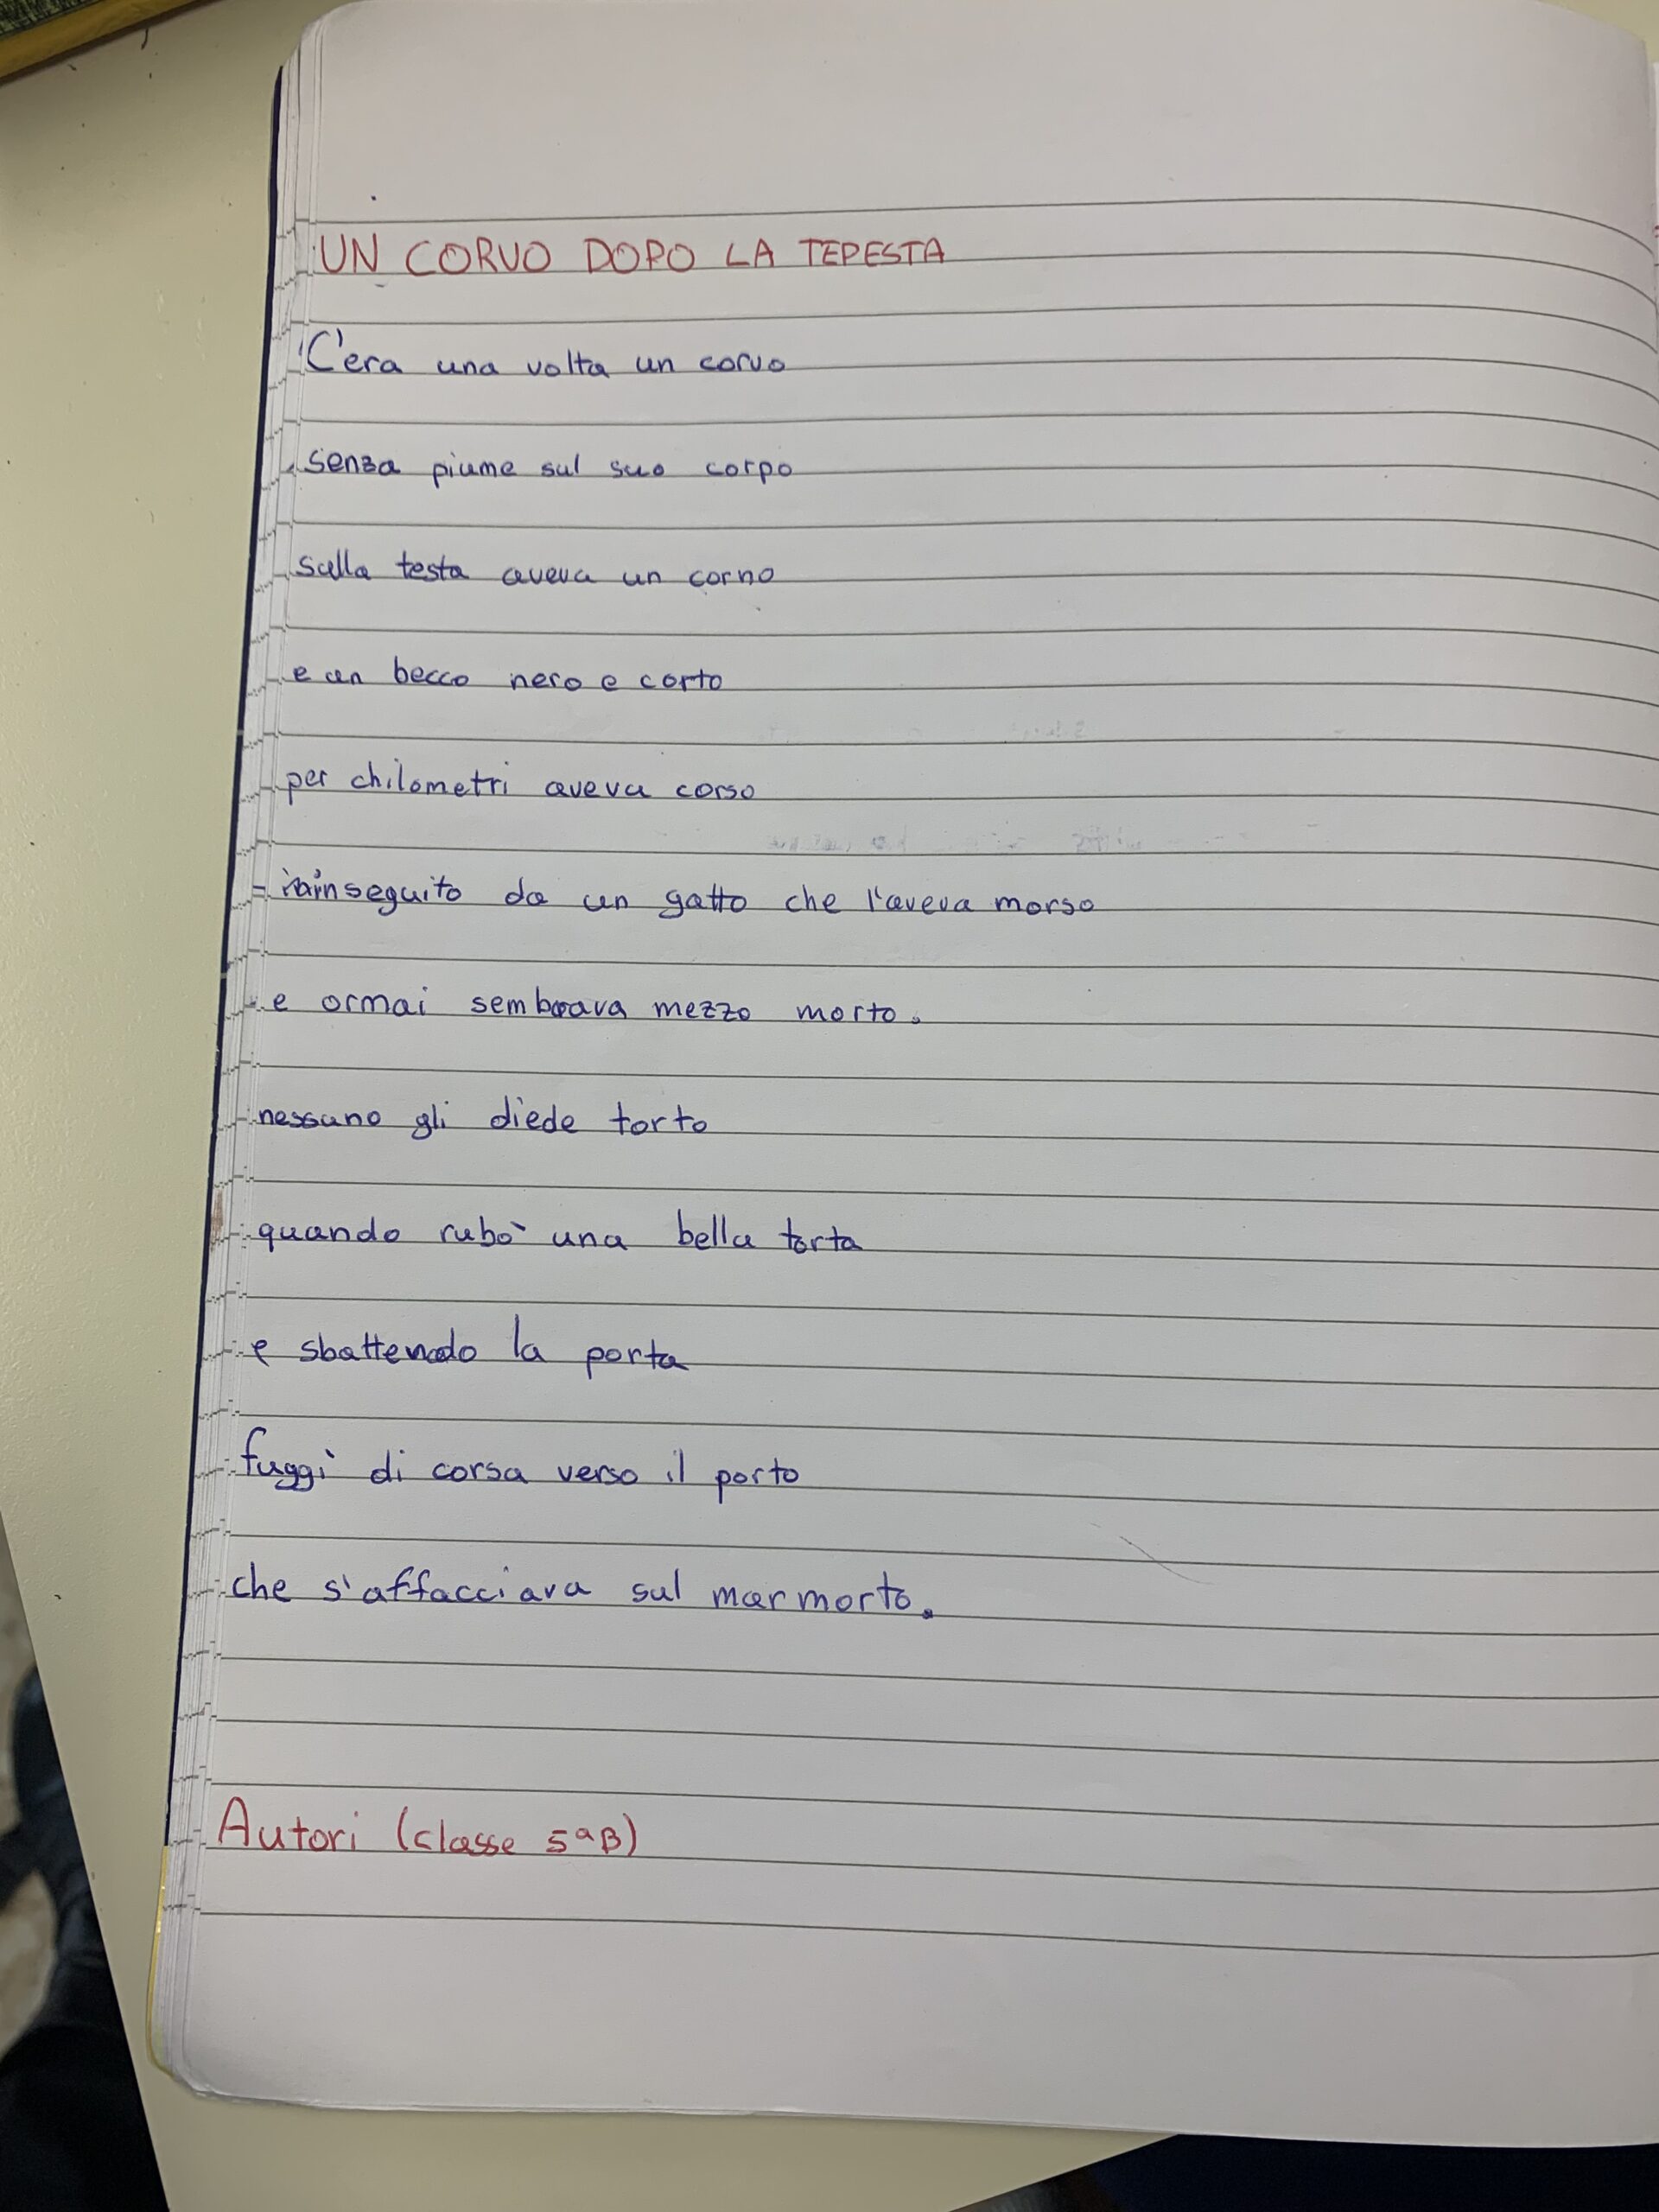 UN CORVO DOPO LA TEPESTA
C'era una volta un corvo
senza piume sul suo corpo
sulla testa aveva un corno
e un becco nero e corto
per chilometri aveva corso
rainseguito da un gatto che l'aveva morso
e ormai sembrava mezzo morto.
nessuno gli diede torto
quando rubò una bella torta
e sbattendo la porta
fuggì di corsa verso il porto
che s'affacciava sul mar morto.
Autori (classe 5ªB)